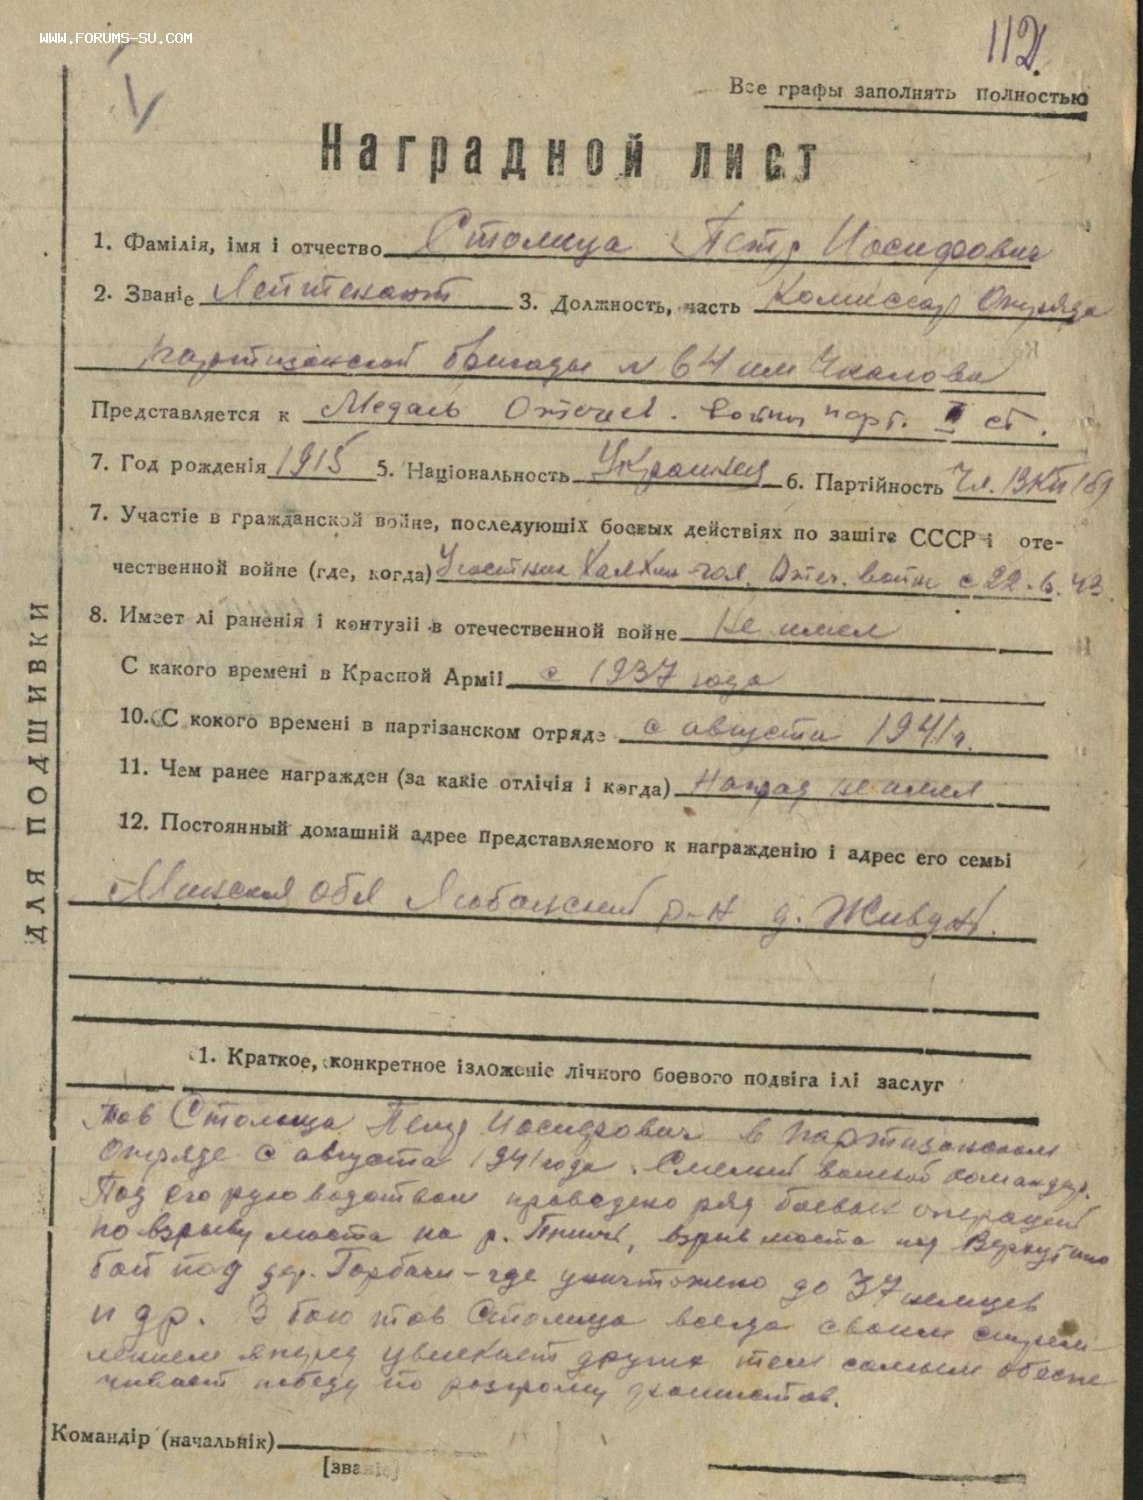 WWW.FORUMS-SU.COM
112.
Все графы заполнять полностью
Наградной лист
1. Фамілія, імя і отчество Столица Петр Иосифович
2. Званіе Лейтенант 3. Должность, часть Комиссар Отряда
партизанской бригады N 64 им Чкалова
Представляется к Медаль Отечеств. войны парт. I ст.
7. Год рожденія 1915 5. Національность Украинец 6. Партійность Чл. ВКП(б)
7. Участіе в гражданской войне, последуюшіх боевых действіях по зашіте СССР і оте-
чественной войне (где, когда) Участник Халхин-гол. Отеч. войны с 22.6.
8. Имеет лі раненія і контузіі в отечественной войне Не имел
С какого времені в Красной Арміі с 1937 года
10. С кокого времені в партізанском отряде с августа 1941 г.
11. Чем ранее награжден (за какіе отлічія і когда) Наград не имел
12. Постоянный домашній адрее представляемого к награжденію і адрес его семьі
Минская обл Любанский р-н д. Живунь.
ДЛЯ ПОДШИВКИ
1. Краткое, конкретное ізложеніе лічного боевого подвіга ілі заслуг
тов Столица Петр Иосифович в партизанском
отряде с августа 1941 года. Смелый волевой командир.
Под его руководством проведено ряд боевых операций
по взрыву моста на р. Птичь, взрыв моста под
бой под дер. Горбачи - где уничтожено до 37 немцев
и др. В бою тов Столица всегда своим стрем-
лением вперед увлекает других тем самым обеспе
чивает победу по разгрому фашистов.
Командір (начальнік)
[званіе]